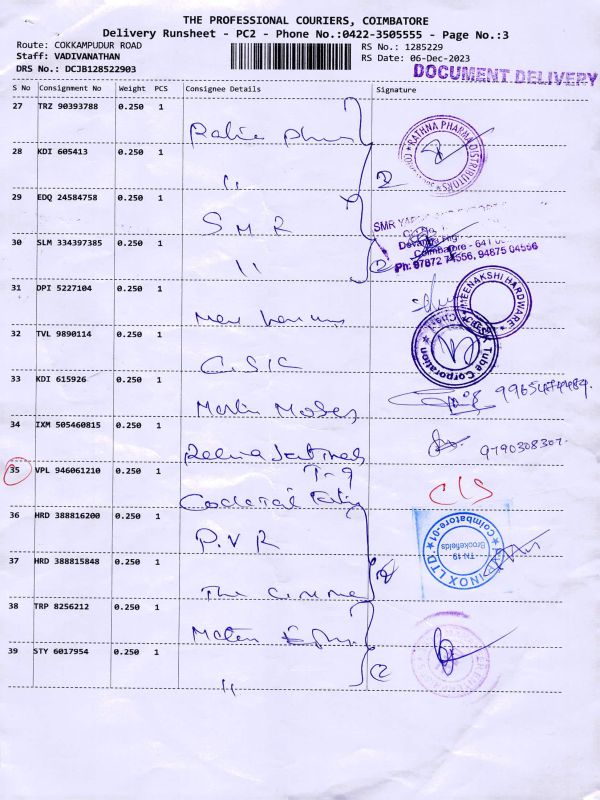 THE PROFESSIONAL COURIERS, COIMBATORE
Delivery Runsheet - PC2 - Phone No.:0422-3505555 - Page No.:3
Route: COKKAMPUDUR ROAD
Staff: VADIVANATHAN
DRS No.: DCJB128522903
RS No.: 1285229
RS Date: 06-Dec-2023
DOCUMENT DELIVERY
S No Consignment No Weight PCS Consignee Details Signature
27 TRZ 90393788 0.250 1
RATHNA PHARMA DISTRIBUTORS
28 KDI 605413 0.250 1 "
2
29 EDQ 24584758 0.250 1 SMR
SMR
30 SLM 334397385 0.250 1 "
2
Coimbatore - 641
Ph: 97872 74556, 94875 04556
31 DPI 5227104 0.250 1
MEENAKSHI HARDWARE
32 TVL 9890114 0.250 1 C.S.K
CSK Tube Corporation
33 KDI 615926 0.250 1 Merlin Moses
34 IXM 505460815 0.250 1
9790308307.
35 VPL 946061210 0.250 1 T-9
C/S
36 HRD 388816200 0.250 1 P.V.R
INOX LTD. Coimbatore-01
TN-19
Brookefields
37 HRD 388815848 0.250 1 The Cinema
38 TRP 8256212 0.250 1
39 STY 6017954 0.250 1 "
2